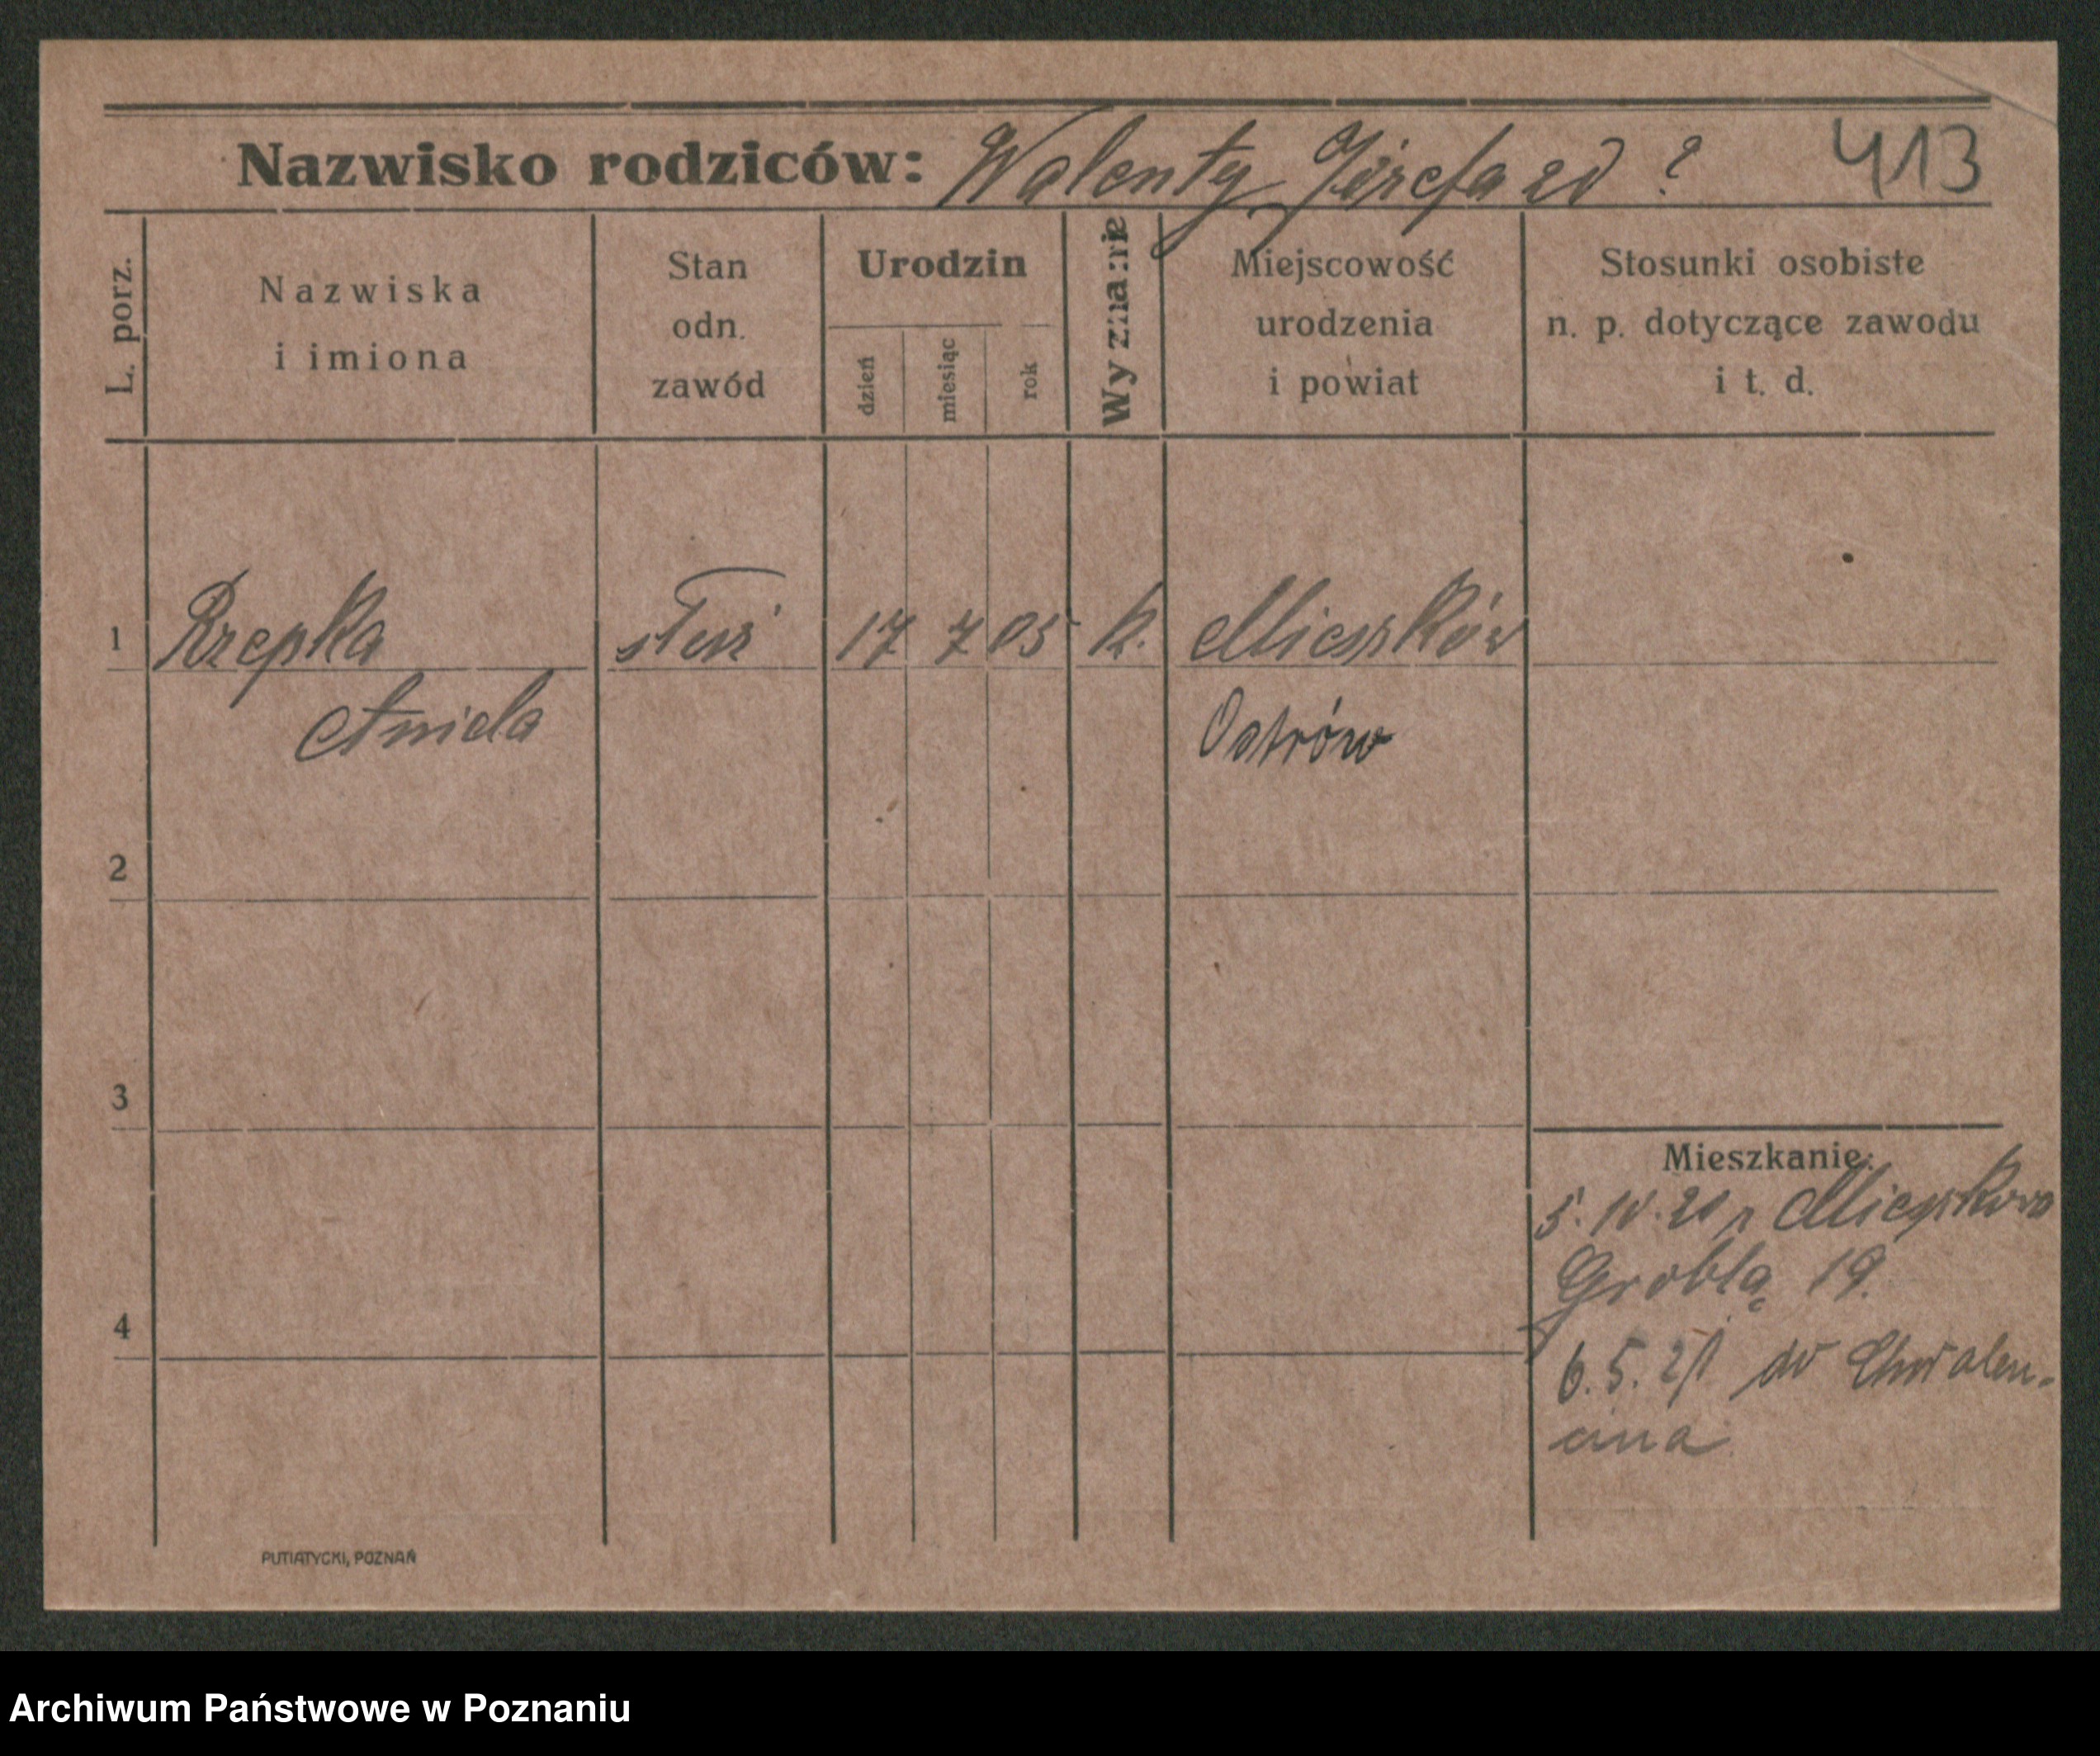 Nazwisko rodziców: Walenty Józefa zd ? 413
L. porz.
Nazwiska
i imiona
Stan
odn.
zawód
Urodzin
dzień
miesiąc
rok
Wyznanie
Miejscowość
urodzenia
i powiat
Stosunki osobiste
n. p. dotyczące zawodu
i t. d.
1 Rzepka służ 17 7 05 k. Mieszków
Aniela Ostrów
2
3
Mieszkanie:
5. 10. 20 z Mieszkowa
Groblą 19.
4
6. 5. 21 do Chwalen-
cina
PUTIATYCKI, POZNAŃ
Archiwum Państwowe w Poznaniu